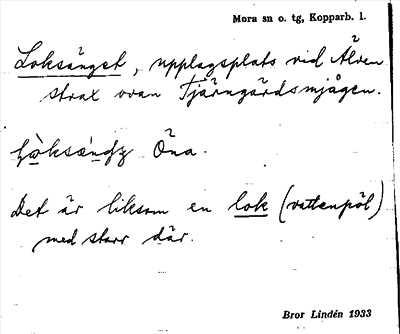 Mora sn o. tg, Kopparb. l.
Loksänget, upplagsplats vid Älven
strax ovan Tjärngårdsmjågen.
Öna.
Det är liksom en lok (vattenpöl)
med starr där.
Bror Lindén 1933